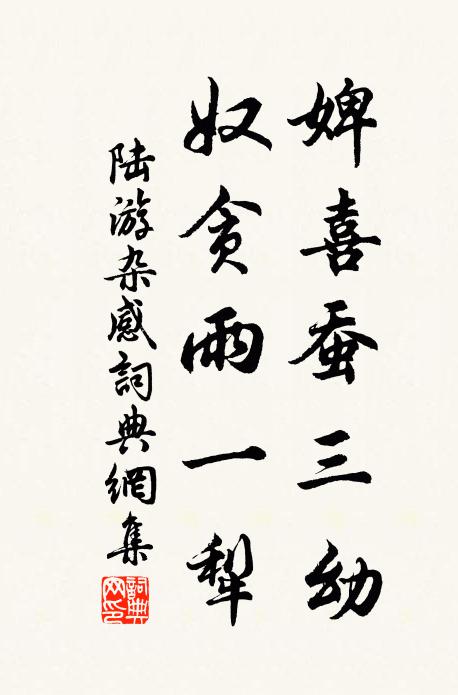 婢喜蚕三幼
奴贪雨一犁
陆游杂感詞典網集
詞典
网印